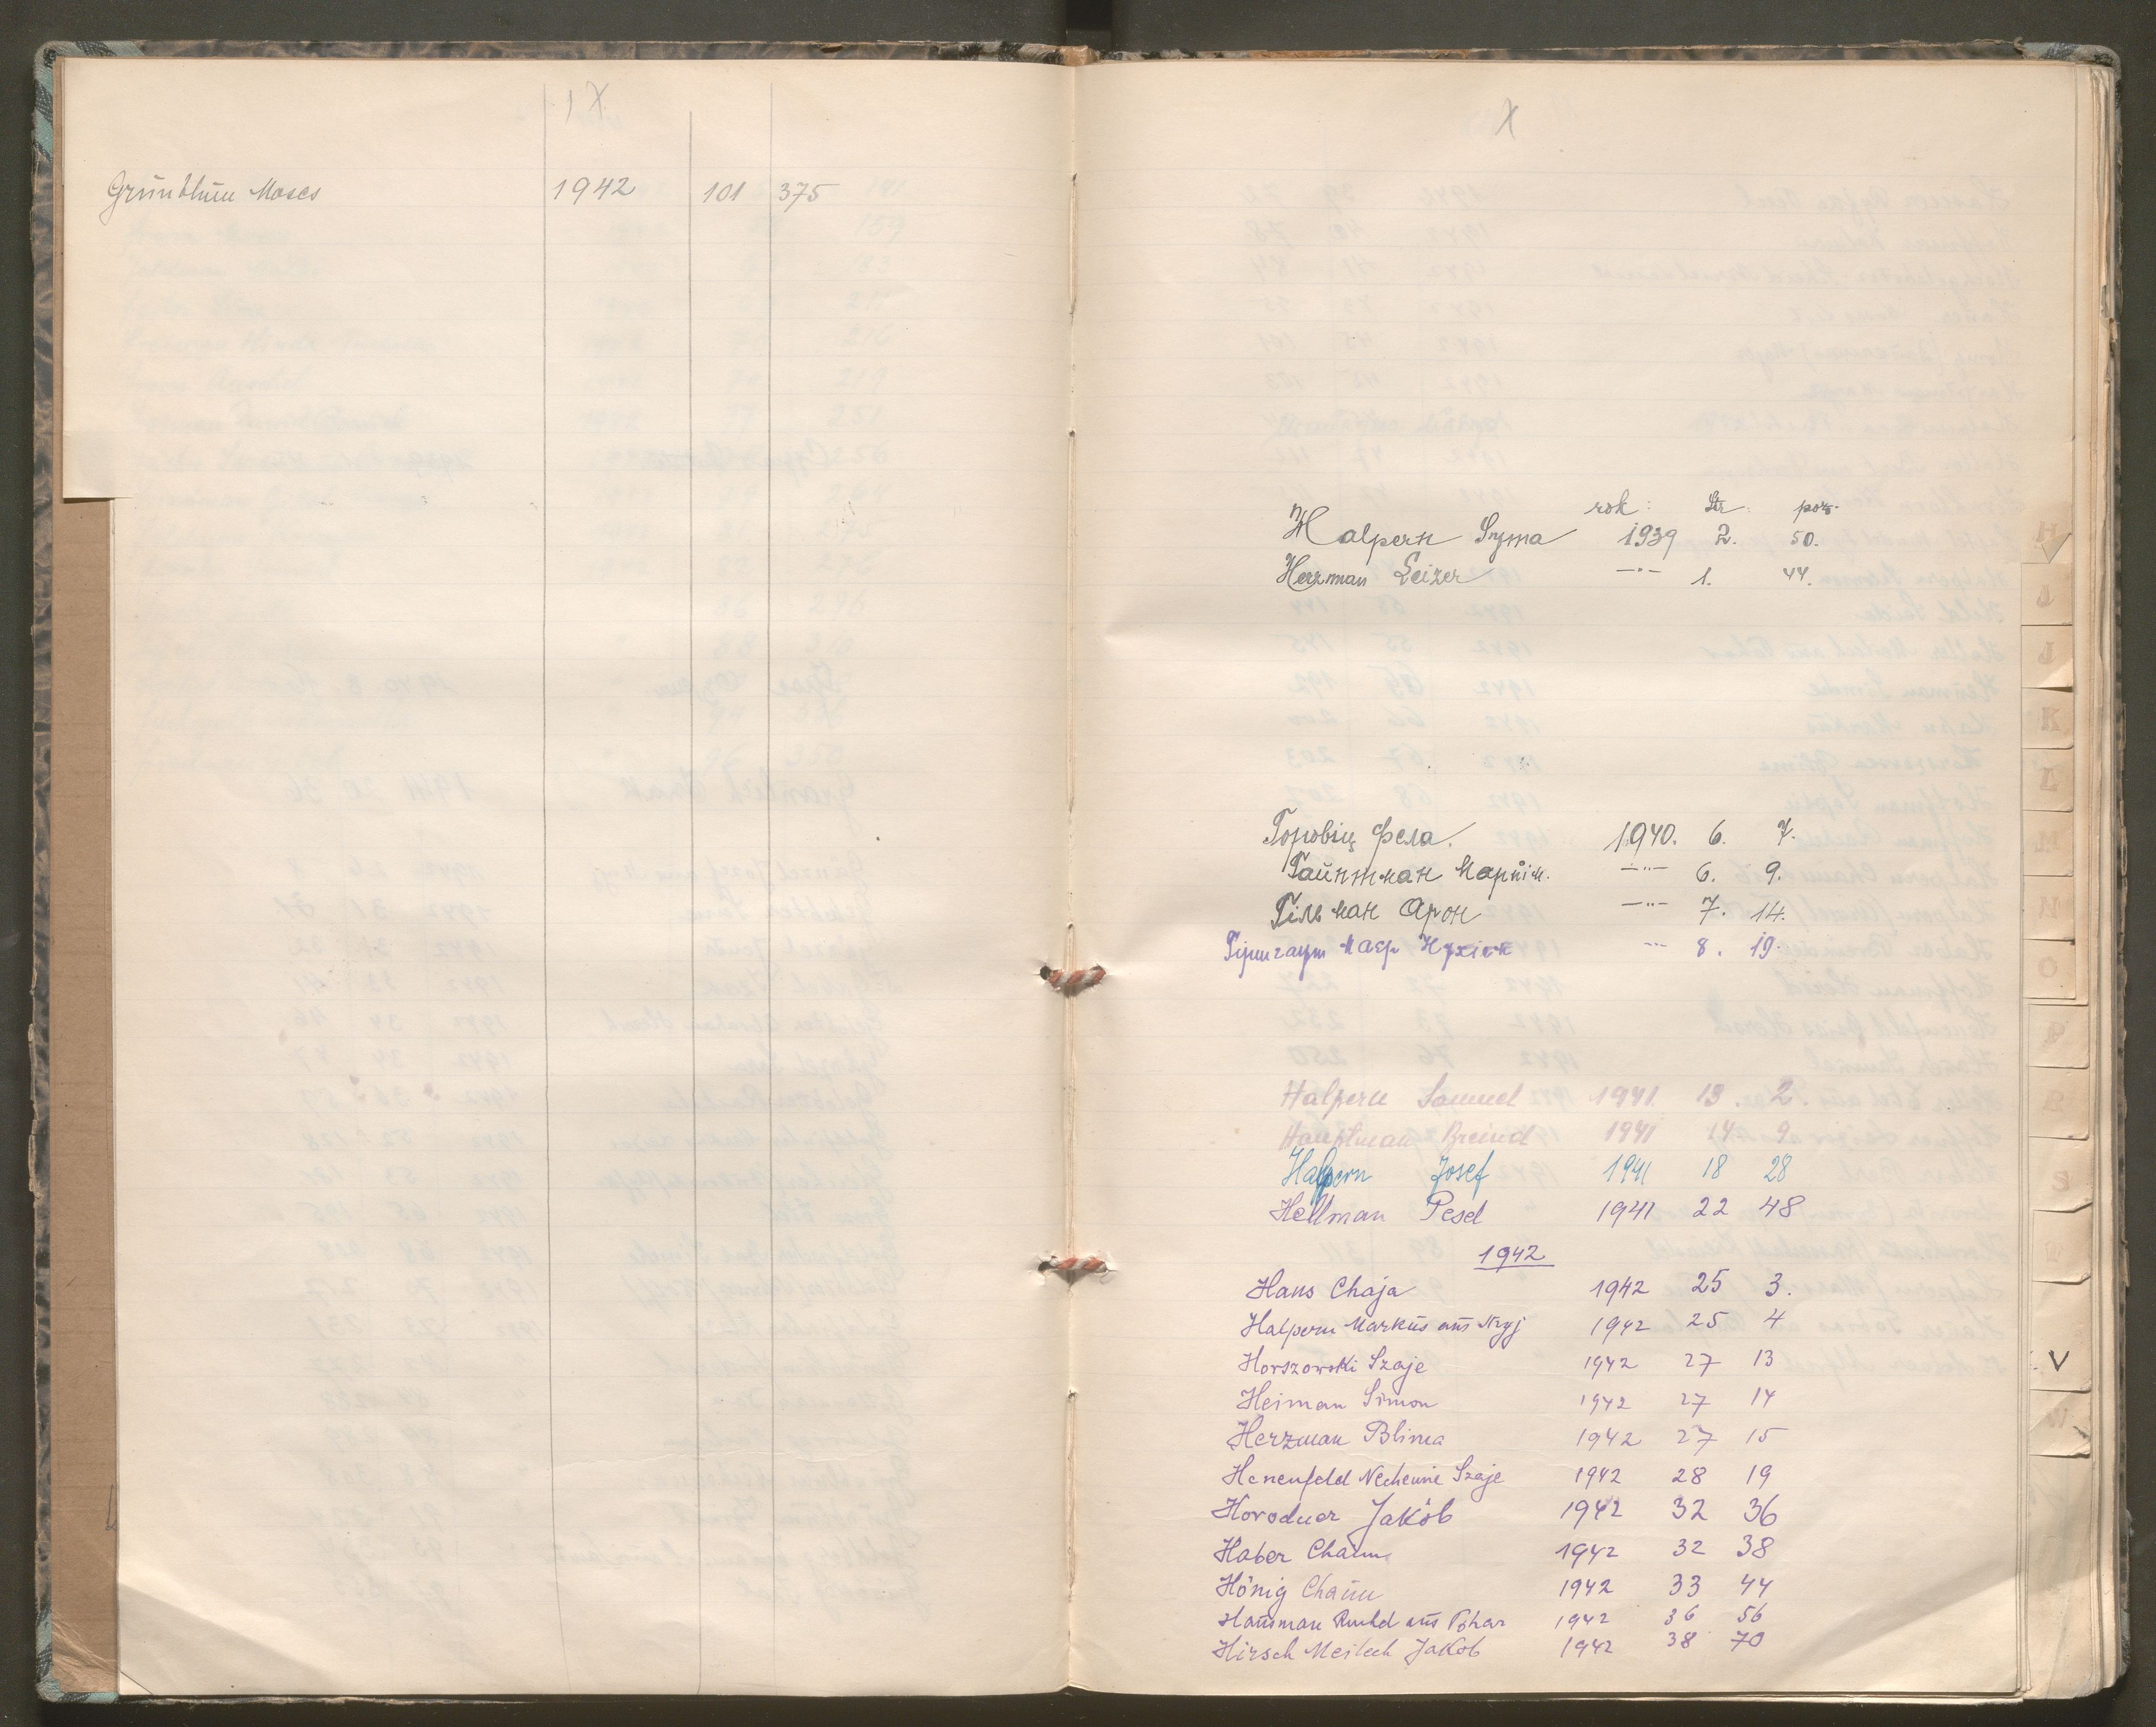 IX
Grünblüm Moses 1942 101 375
X
rok: Str. poz.
Halpern Syma 1939 2. 50.
Herzman Leizer —"— 1. 44.
Горовіц Фела. 1940. 6. 7.
Гайптман —"— 6. 9.
Гільман Арон —"— 7. 14.
8. 19.
Halpern Samuel 1941. 13. 2.
Hauptman Breind 1941 14 9
Halpern Josef 1941 18 28
Hellman Pesel 1941 22 48
1942
Hans Chaja 1942 25 3.
Halpern Markus aus Stryj 1942 25 4
Horszowski Szaje 1942 27 13
Heiman Simon 1942 27 14
Herzman Blima 1942 27 15
Henenfeld Szaje 1942 28 19
Horodner Jakób 1942 32 36
Haber Chaim 1942 32 38
Hönig Chaim 1942 33 44
Hausman aus 1942 36 56
Hirsch Meilech Jakob 1942 38 70
H
J
J
K
L
M
N
O
P
R
S
V
W